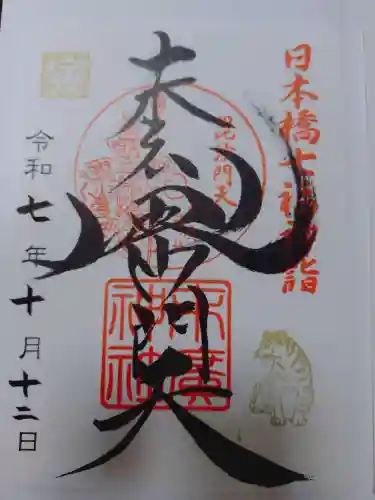 日本橋七福神詣
毘沙門天
毘沙門天
末廣神社
令和七年十月十二日